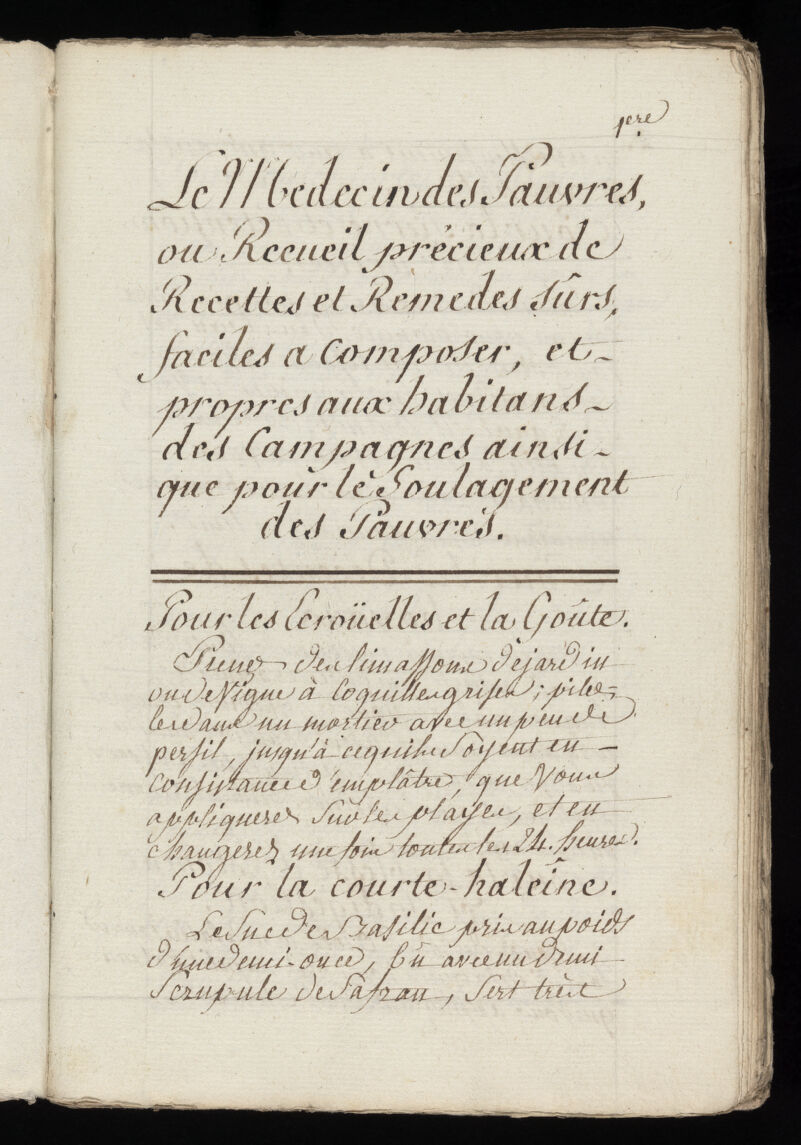 1ere
Le Medecin des Pauvres,
ou Recueil précieux de
Recettes et Remedes sûrs,
faciles a composer, et
propres aux habitans
des Campagnes ainsi
que pour le Soulagement
des Pauvres.
Pour les Ecroüelles et la Goûte.
Prenez des limassons de jardin
ou de Vigne à Coquilles grises; pilez
les dans un mortier avec un peu de
persil, jusqu'à ce quils Soyent en
Consistance d'emplâtre, que Vous
appliquerez Sur les playes, et en
changerez une fois toutes les 24. heures.
Pour la courte-haleine.
Le Suc de Basilic pris au poids
d'une demi-once, bû avec un demi
Scrupule de Safran, Sert très